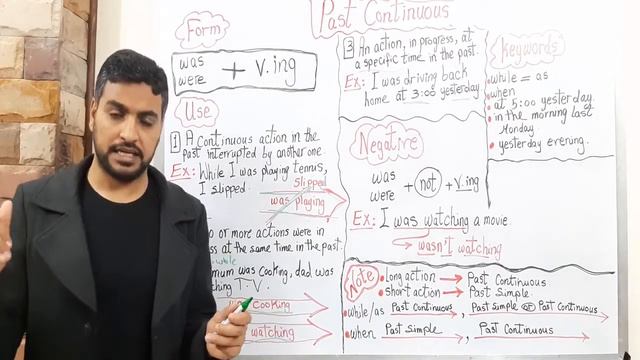 Past Continuous
Form
was
were
+ V.ing
Use
1 A Continuous action in the
past interrupted by another one.
Ex: While I was playing tennis,
I slipped.
Slipped
was playing
o or more actions were in
ess at the same time in the past.
while
mum was cooking, dad was
ching T.V.
Cooking
watching
3 An action, in progress, at
a specific time in the past.
Ex: I was driving back
home at 3:05 yesterday
Negative
was
were
+ not + v.ing
Ex: I was watching a movie
wasn't watching
Keywords
while = as
when
at 5:00 yesterday
in the morning last
Monday
yesterday evening.
Note
Long action → Past Continuous
Short action → Past Simple
while/as Past Continuous, Past Simple or Past Continuous
when Past Simple, Past Continuous